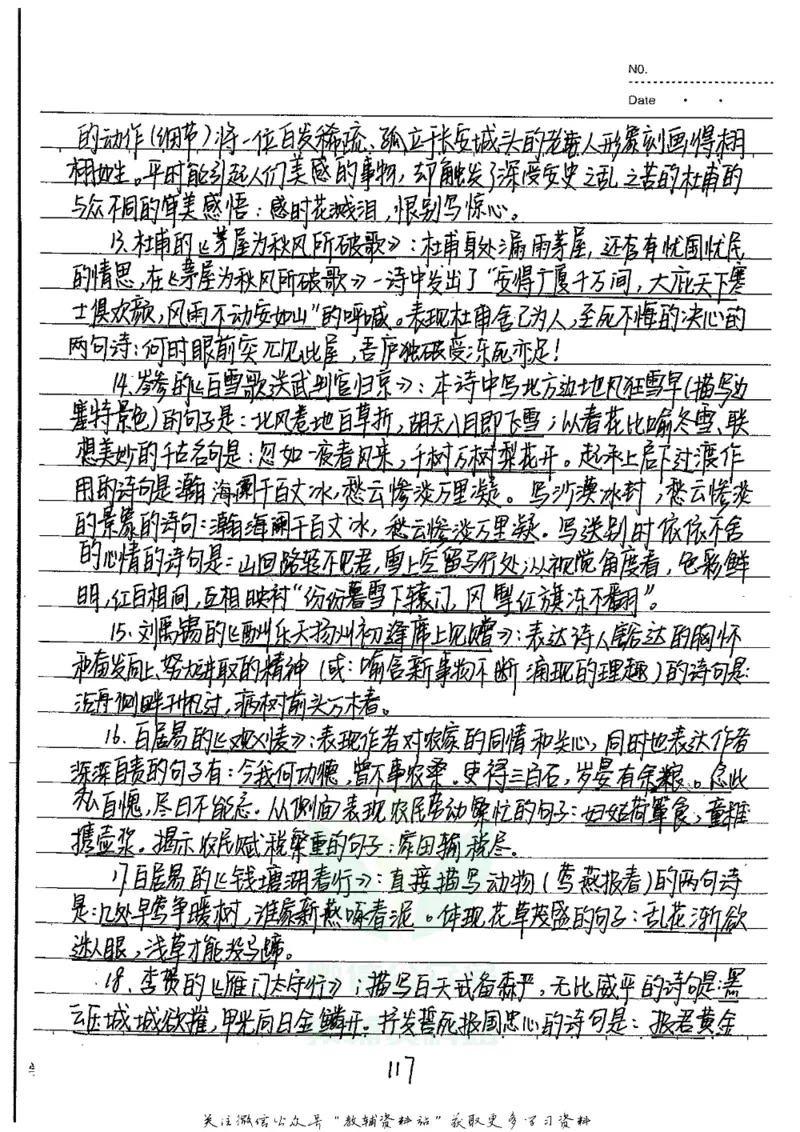 NO.
Date
的动作(细节)将一位白发稀疏、孤立于长安城头的老者人形象刻画得栩
栩如生。平时能引起人们美感的事物,却触发了深受安史之乱之苦的杜甫的
与众不同的审美感悟:感时花溅泪,恨别鸟惊心。
13.杜甫的《茅屋为秋风所破歌》:杜甫身处漏雨茅屋,还富有忧国忧民
的情思,在《茅屋为秋风所破歌》一诗中发出了“安得广厦千万间,大庇天下寒
士俱欢颜,风雨不动安如山”的呼喊。表现杜甫舍己为人,至死不悔的决心的
两句诗:何时眼前突兀见此屋,吾庐独破受冻死亦足!
14.岑参的《白雪歌送武判官归京》:本诗中写北方边地风狂雪早(描写边
塞特景色)的句子是:北风卷地百草折,胡天八月即飞雪;以春花比喻冬雪、联
想美妙的千古名句是:忽如一夜春风来,千树万树梨花开。起承上启下过渡作
用的诗句是瀚海阑干百丈冰,愁云惨淡万里凝。写沙漠冰封,愁云惨淡
的景象的诗句:瀚海阑干百丈冰,愁云惨淡万里凝。写送别时依依不舍
的心情的诗句是:山回路转不见君,雪上空留马行处;从视觉角度看,色彩鲜
明,红白相间,互相映衬“纷纷暮雪下辕门,风掣红旗冻不翻”。
15.刘禹锡的《酬乐天扬州初逢席上见赠》:表达诗人豁达的胸怀
和奋发向上、努力进取的精神(或:喻含新事物不断涌现的理趣)的诗句是:
沉舟侧畔千帆过,病树前头万木春。
16.白居易的《观刈麦》:表现作者对农家的同情和关心,同时也表达作者
深深自责的句子有:今我何功德,曾不事农桑。吏得三百石,岁晏有余粮。念此
私自愧,尽日不能忘。从侧面表现农民劳动繁忙的句子:妇姑荷箪食,童稚
携壶浆。揭示农民赋税繁重的句子:家田输税尽。
17.白居易的《钱塘湖春行》:直接描写动物(莺燕报春)的两句诗
是:几处早莺争暖树,谁家新燕啄春泥。体现花草茂盛的句子:乱花渐欲
迷人眼,浅草才能没马蹄。
18.李贺的《雁门太守行》:描写白天戒备森严,无比威严的诗句是:黑
云压城城欲摧,甲光向日金鳞开。抒发誓死报国忠心的诗句是:报君黄金
117
关注微信公众号"教辅资料站"获取更多学习资料